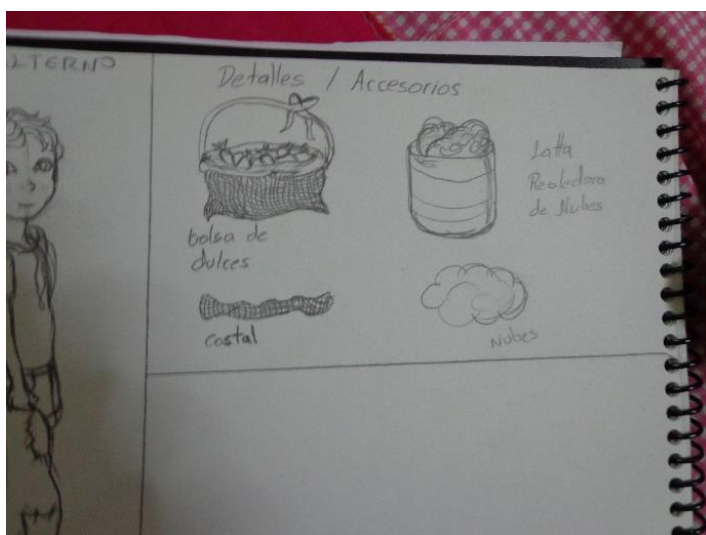 LTERNO
Detalles / Accesorios
bolsa de
dulces
Latta
Recolectora
de Nubes
costal
Nubes